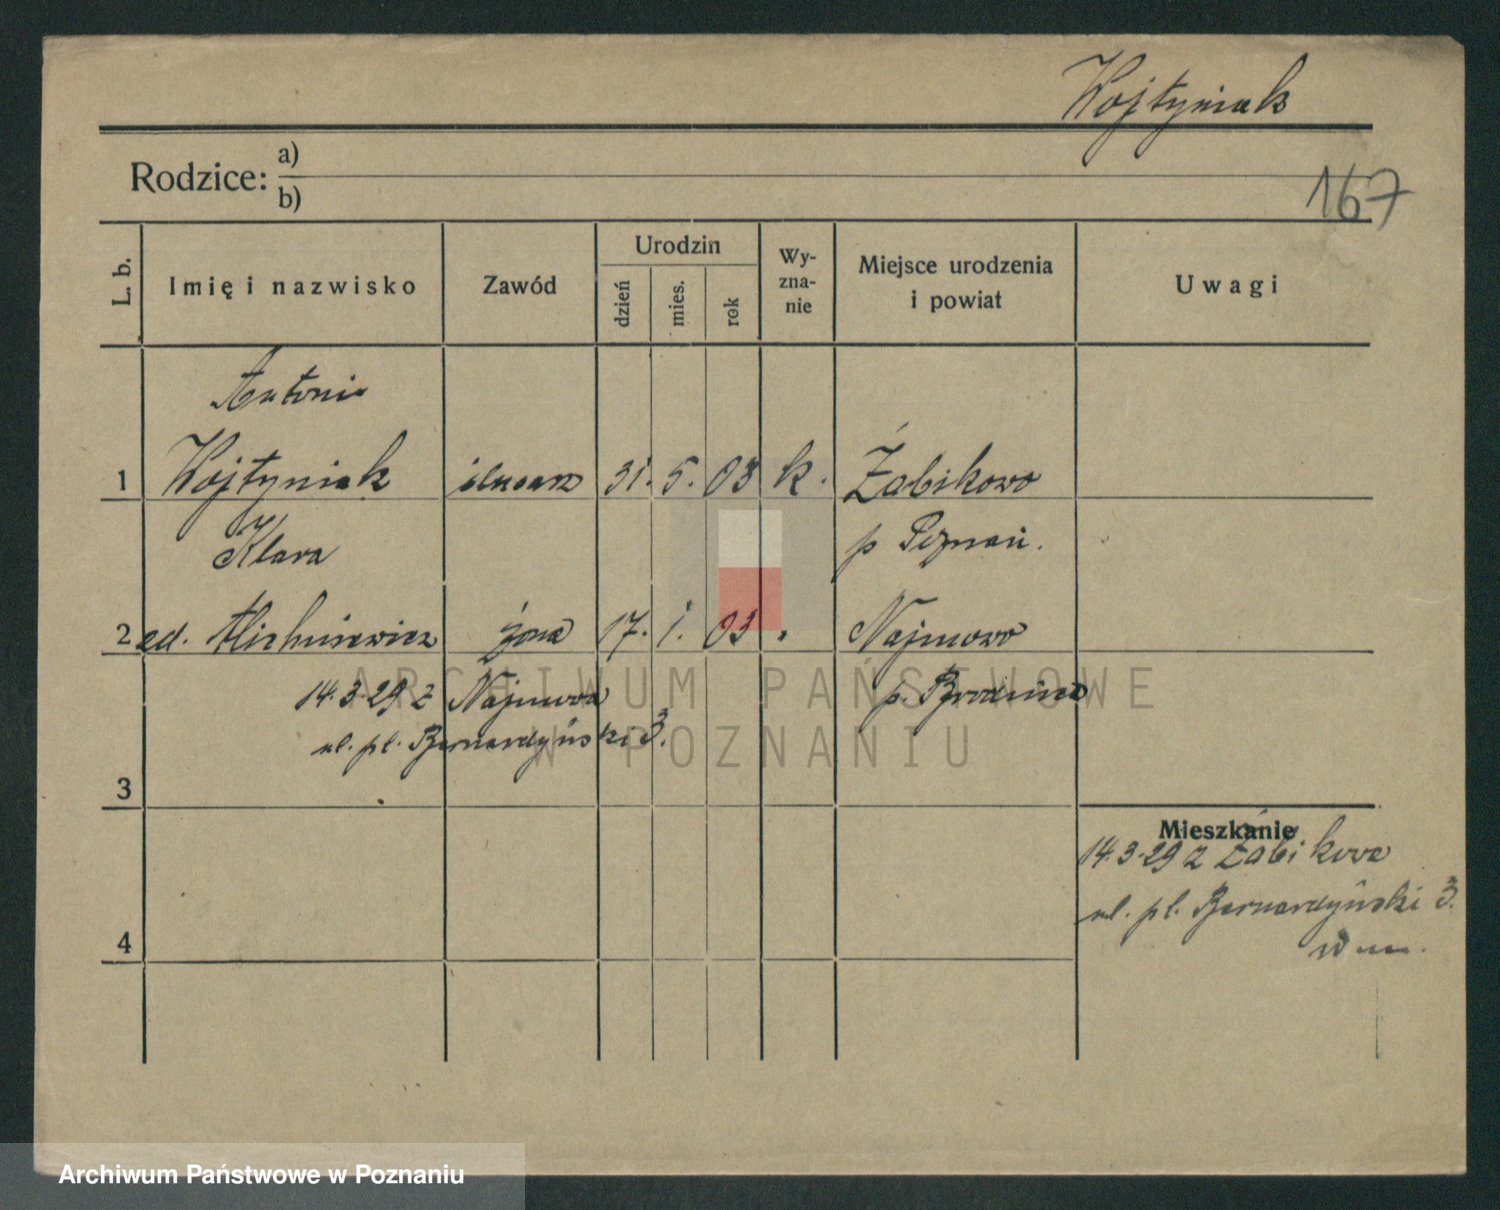 Wojtyniak
Rodzice: a)
b)
167
L. b.
Imię i nazwisko
Zawód
Urodzin
dzień
mies.
rok
Wy-
zna-
nie
Miejsce urodzenia
i powiat
Uwagi
Antoni
1 Wojtyniak ślusarz 31. 5. 03 k. Żabikowo
Klara p Poznań.
2 żona 17. 1. 03 " Najmowo
14.3.29 z Najmowa p. Brodnica
ul. pl. Bernardyński 3.
3
Mieszkanie
14.3.29 z Żabikowa
ul. pl. Bernardyński 3.
4
ARCHIWUM PAŃSTWOWE
W POZNANIU
Archiwum Państwowe w Poznaniu